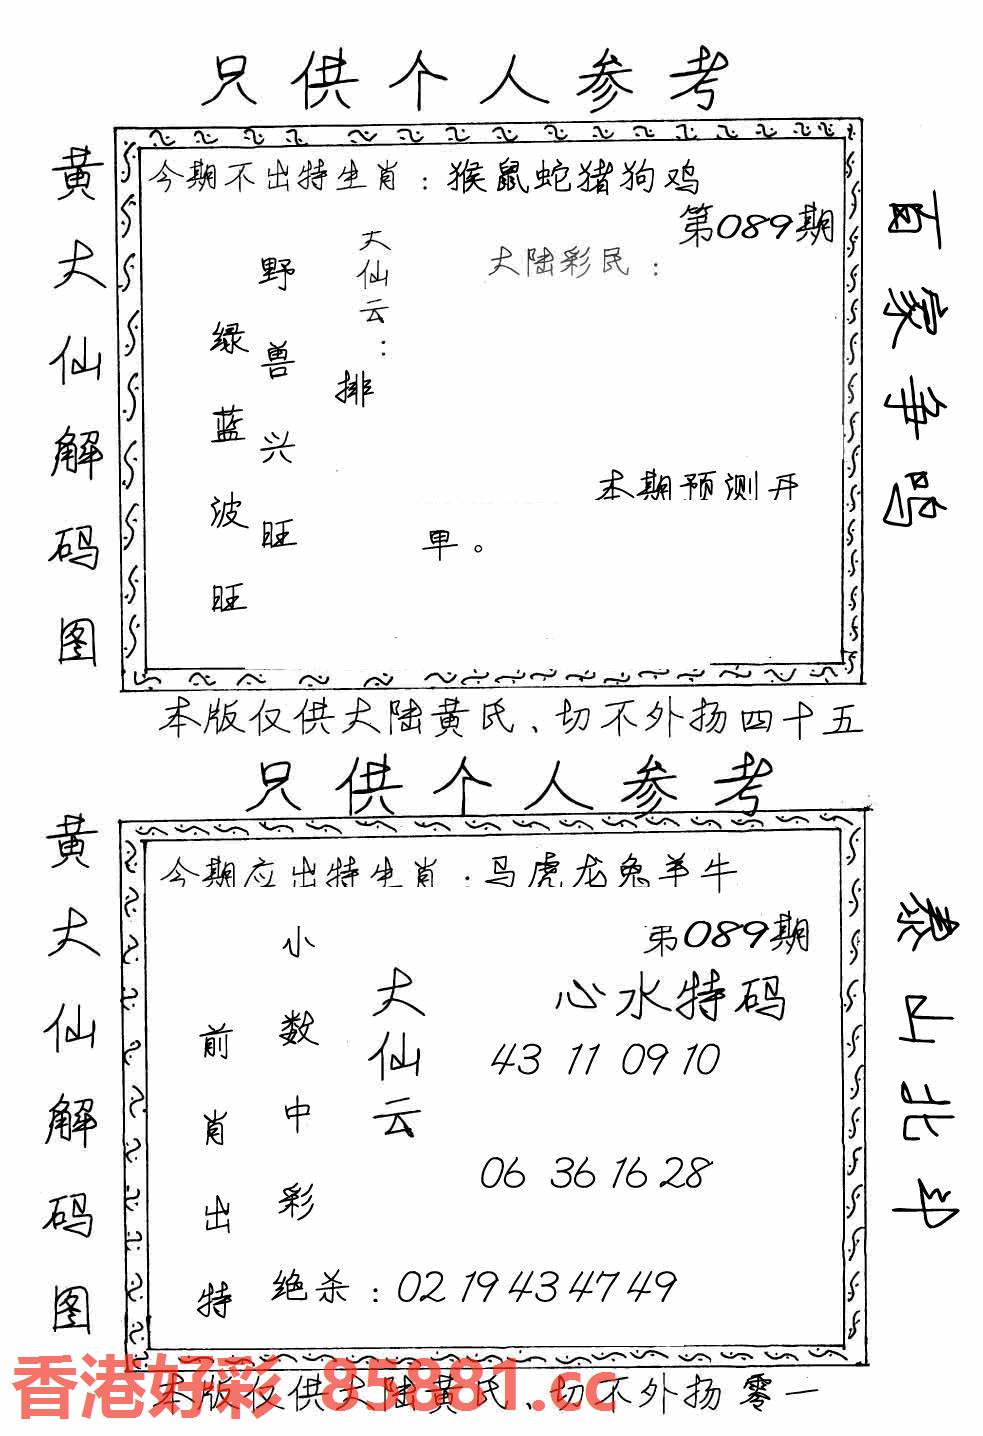 只供个人参考
黄大仙解码图
今期不出特生肖：猴鼠蛇猪狗鸡
第089期
大陆彩民：
大仙云：
排
野兽兴旺
绿蓝波旺
本期预测开
单。
百家争鸣
本版仅供大陆黄氏、切不外扬四十五
只供个人参考
黄大仙解码图
今期应出特生肖：马虎龙兔羊牛
第089期
心水特码
大仙云
43 11 09 10
06 36 16 28
小数中彩
前肖出特
绝杀：02 19 43 47 49
泰山北斗
本版仅供大陆黄氏、切不外扬零一
香港好彩 85881.cc